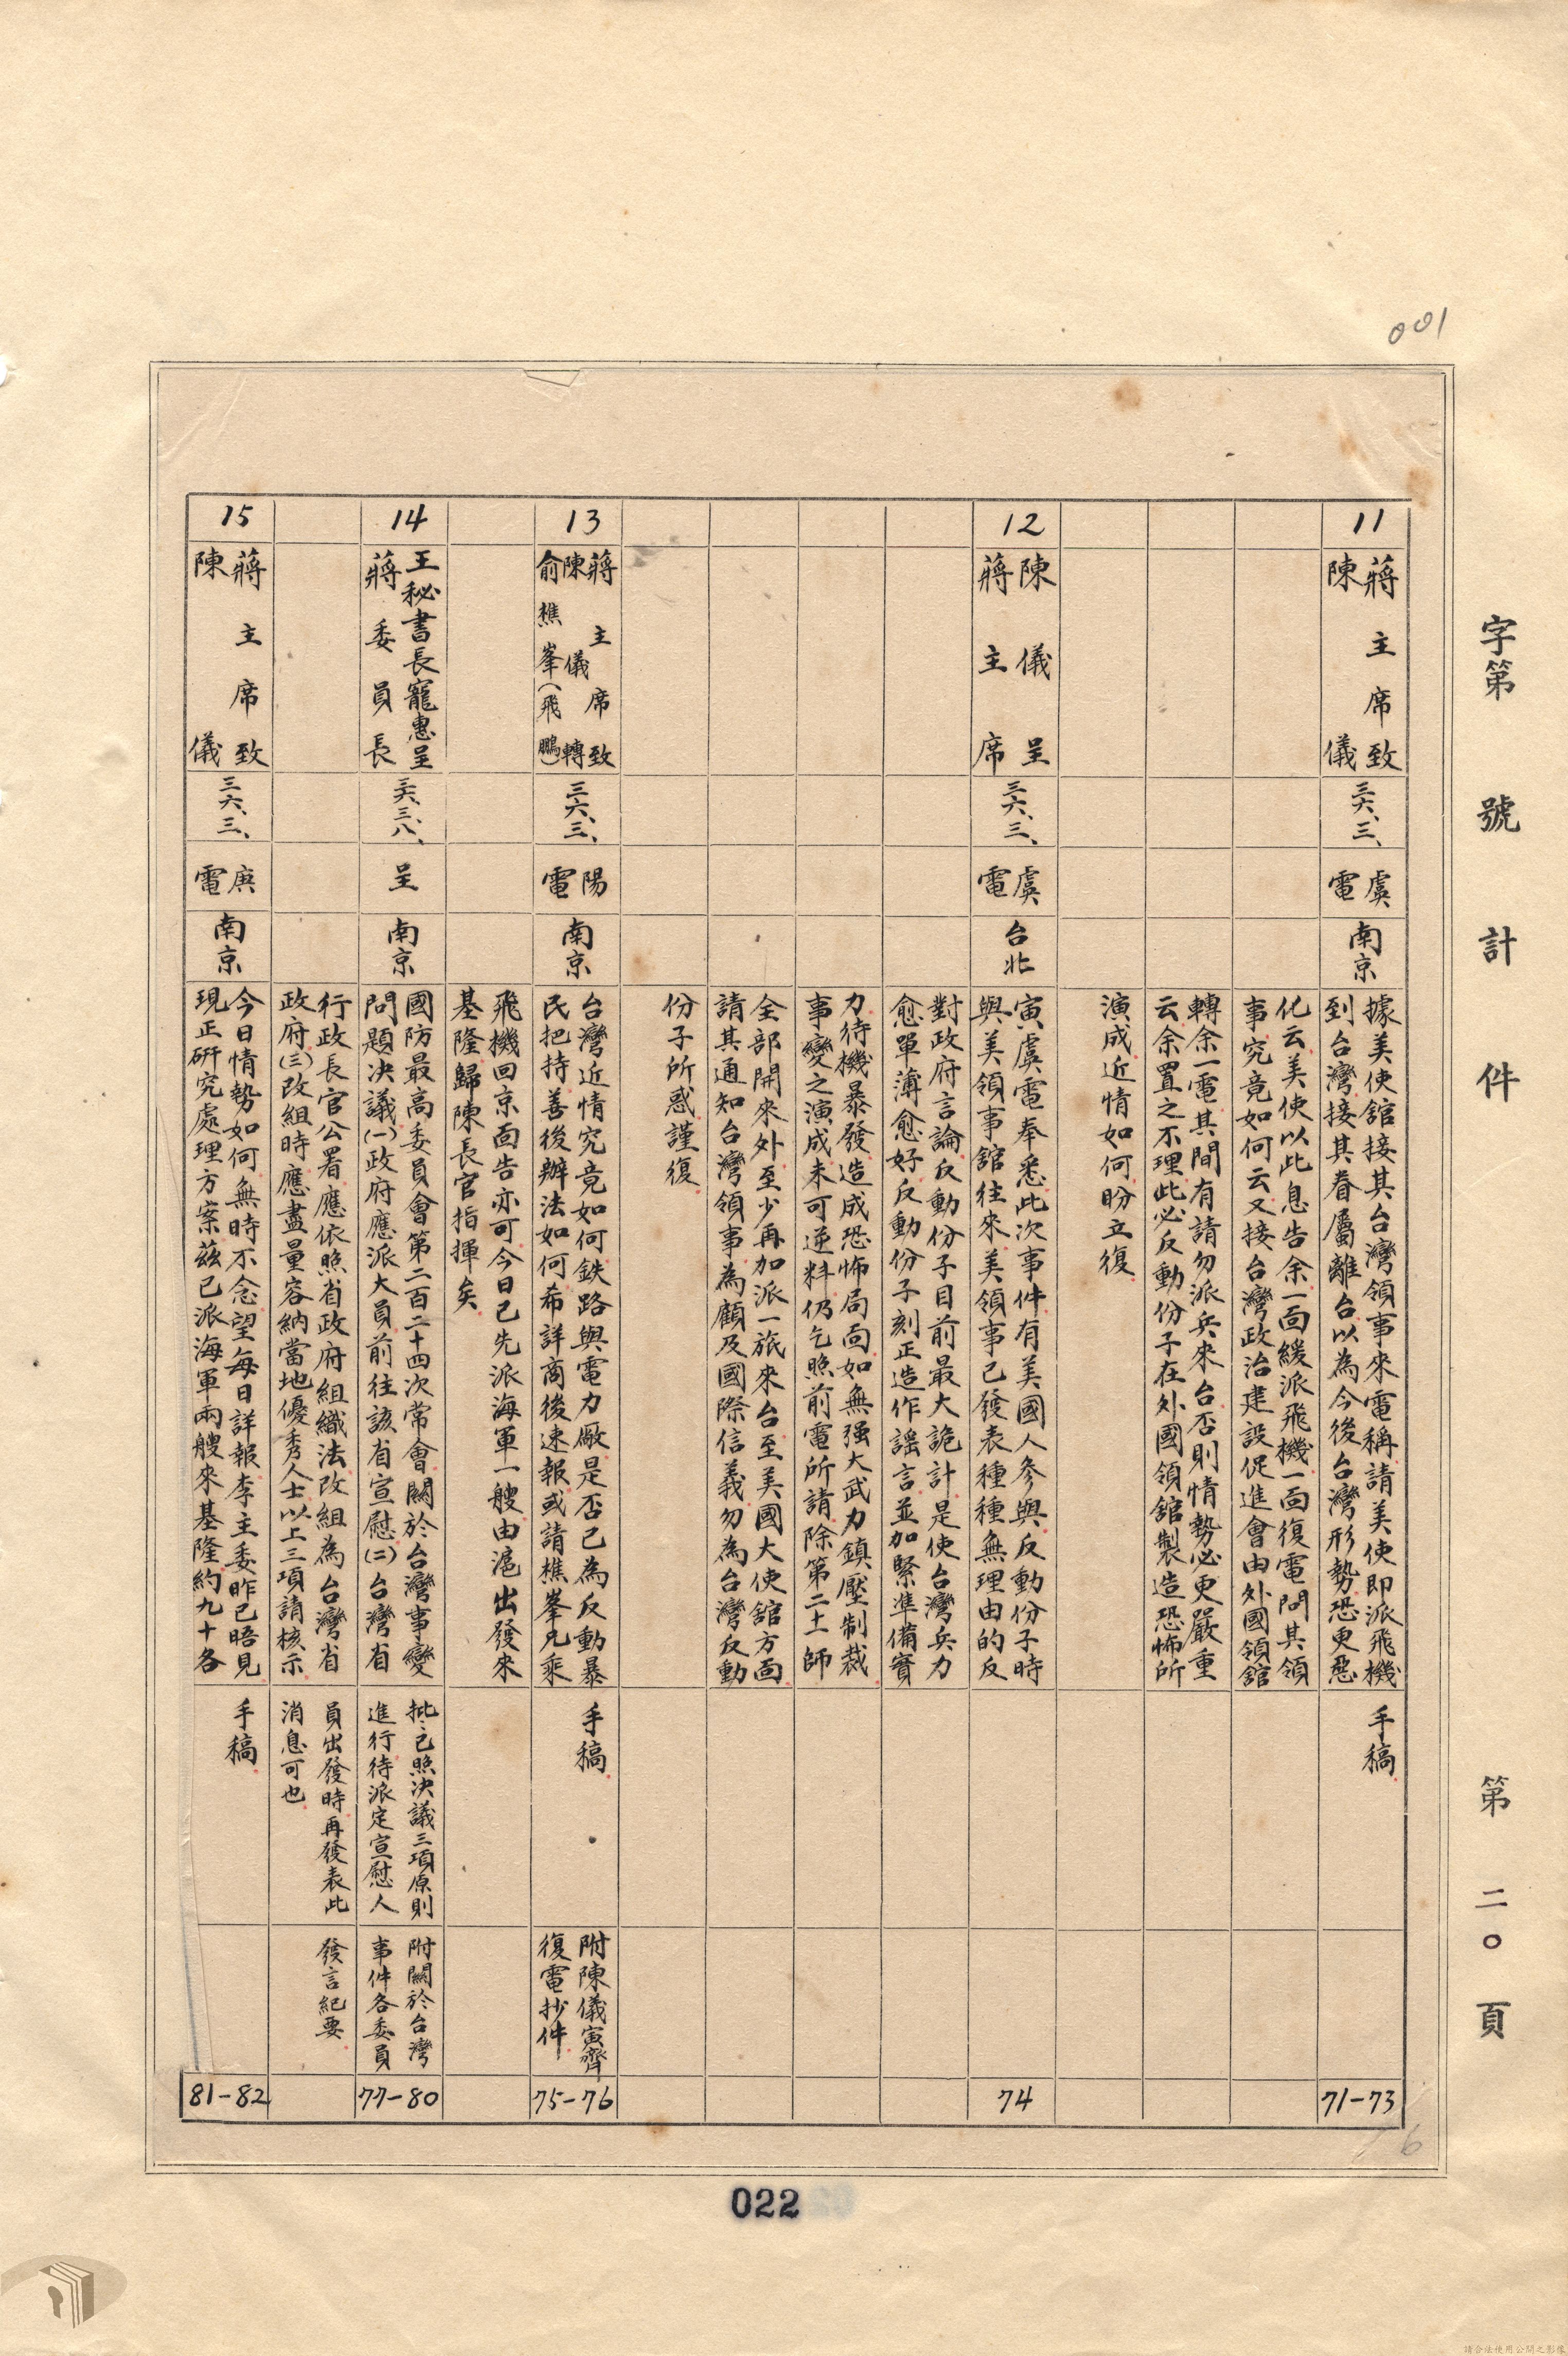 001
字第 號 計 件 第 二〇 頁
11
蔣主席致
陳儀
三六、三、
虞
電
南京
據美使館接其台灣領事來電稱請美使即派飛機
到台灣接其眷屬離台以為今後台灣形勢恐更惡
化云美使以此息告余一面緩派飛機一面復電問其領
事究竟如何云又接台灣政治建設促進會由外國領館
轉余一電其間有請勿派兵來台否則情勢必更嚴重
云余置之不理此必反動份子在外國領館製造恐怖所
演成近情如何盼立復
手稿
71-73
12
陳儀呈
蔣主席
三六、三、
虞
電
台北
寅虞電奉悉此次事件有美國人參與反動份子時
與美領事館往來美領事已發表種種無理由的反
對政府言論反動份子目前最大詭計是使台灣兵力
愈單薄愈好反動份子刻正造作謠言並加緊準備實
力待機暴發造成恐怖局面如無强大武力鎮壓制裁
事變之演成未可逆料仍乞照前電所請除第二十一師
全部開來外至少再加派一旅來台至美國大使館方面
請其通知台灣領事為顧及國際信義勿為台灣反動
份子所惑謹復
74
13
蔣主席致
陳儀轉
俞樵峯(飛鵬)
三六、三、
陽
電
南京
台灣近情究竟如何鉄路與電力廠是否已為反動暴
民把持善後辦法如何希詳商後速報或請樵峯兄乘
飛機回京面告亦可今日已先派海軍一艘由滬出發來
基隆歸陳長官指揮矣
手稿
附陳儀寅齊
復電抄件
75-76
14
王秘書長寵惠呈
蔣委員長
三六、三、八、
呈
南京
國防最高委員會第二百二十四次常會關於台灣事變
問題決議(一)政府應派大員前往該省宣慰(二)台灣省
行政長官公署應依照省政府組織法改組為台灣省
政府(三)改組時應盡量容納當地優秀人士以上三項請核示
批:已照決議三項原則
進行待派定宣慰人
員出發時再發表此
消息可也
附關於台灣
事件各委員
發言紀要
77-80
15
蔣主席致
陳儀
三六、三、
庚
電
南京
今日情勢如何無時不念望每日詳報李主委昨已晤見
現正研究處理方案茲已派海軍兩艘來基隆約九十各
手稿
81-82
6
022
請合法使用公開之影像